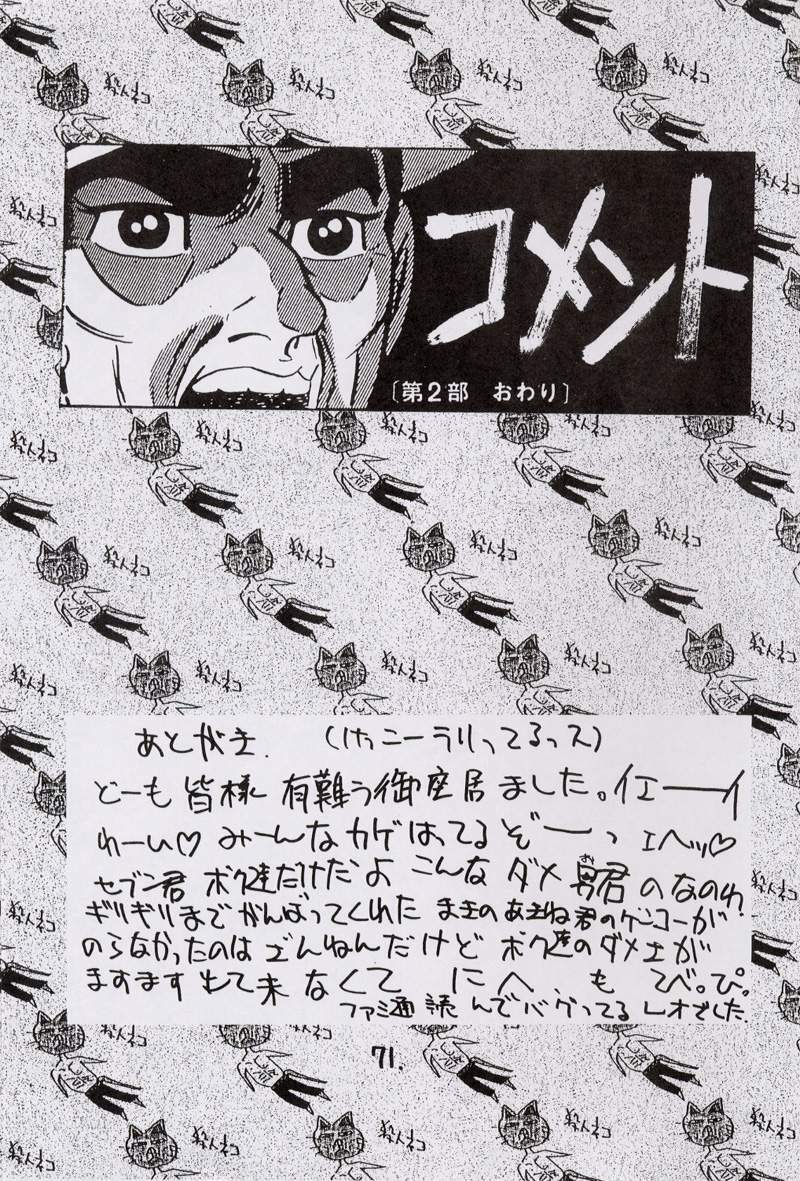 コメント
〔第2部 おわり〕
殺人ネコ
あとがき. (けっこーラリってるっス)
どーも皆様 有難う御座居ました。イエーーイ
わーい♡ みーんなカゲはってるぞーーっ エヘッ♡
セブン君 ボク達だけだよ こんな ダメ男君のなのわ
ギリギリまでがんばってくれた まきのあきね君のゲンコーが
のらなかったのは ざんねんだけど ボク達のダメエが
ますます 出て来 なくて に へ も てべ。ぴ。
ファミ通 読 んで バグってる レオでした.
71.